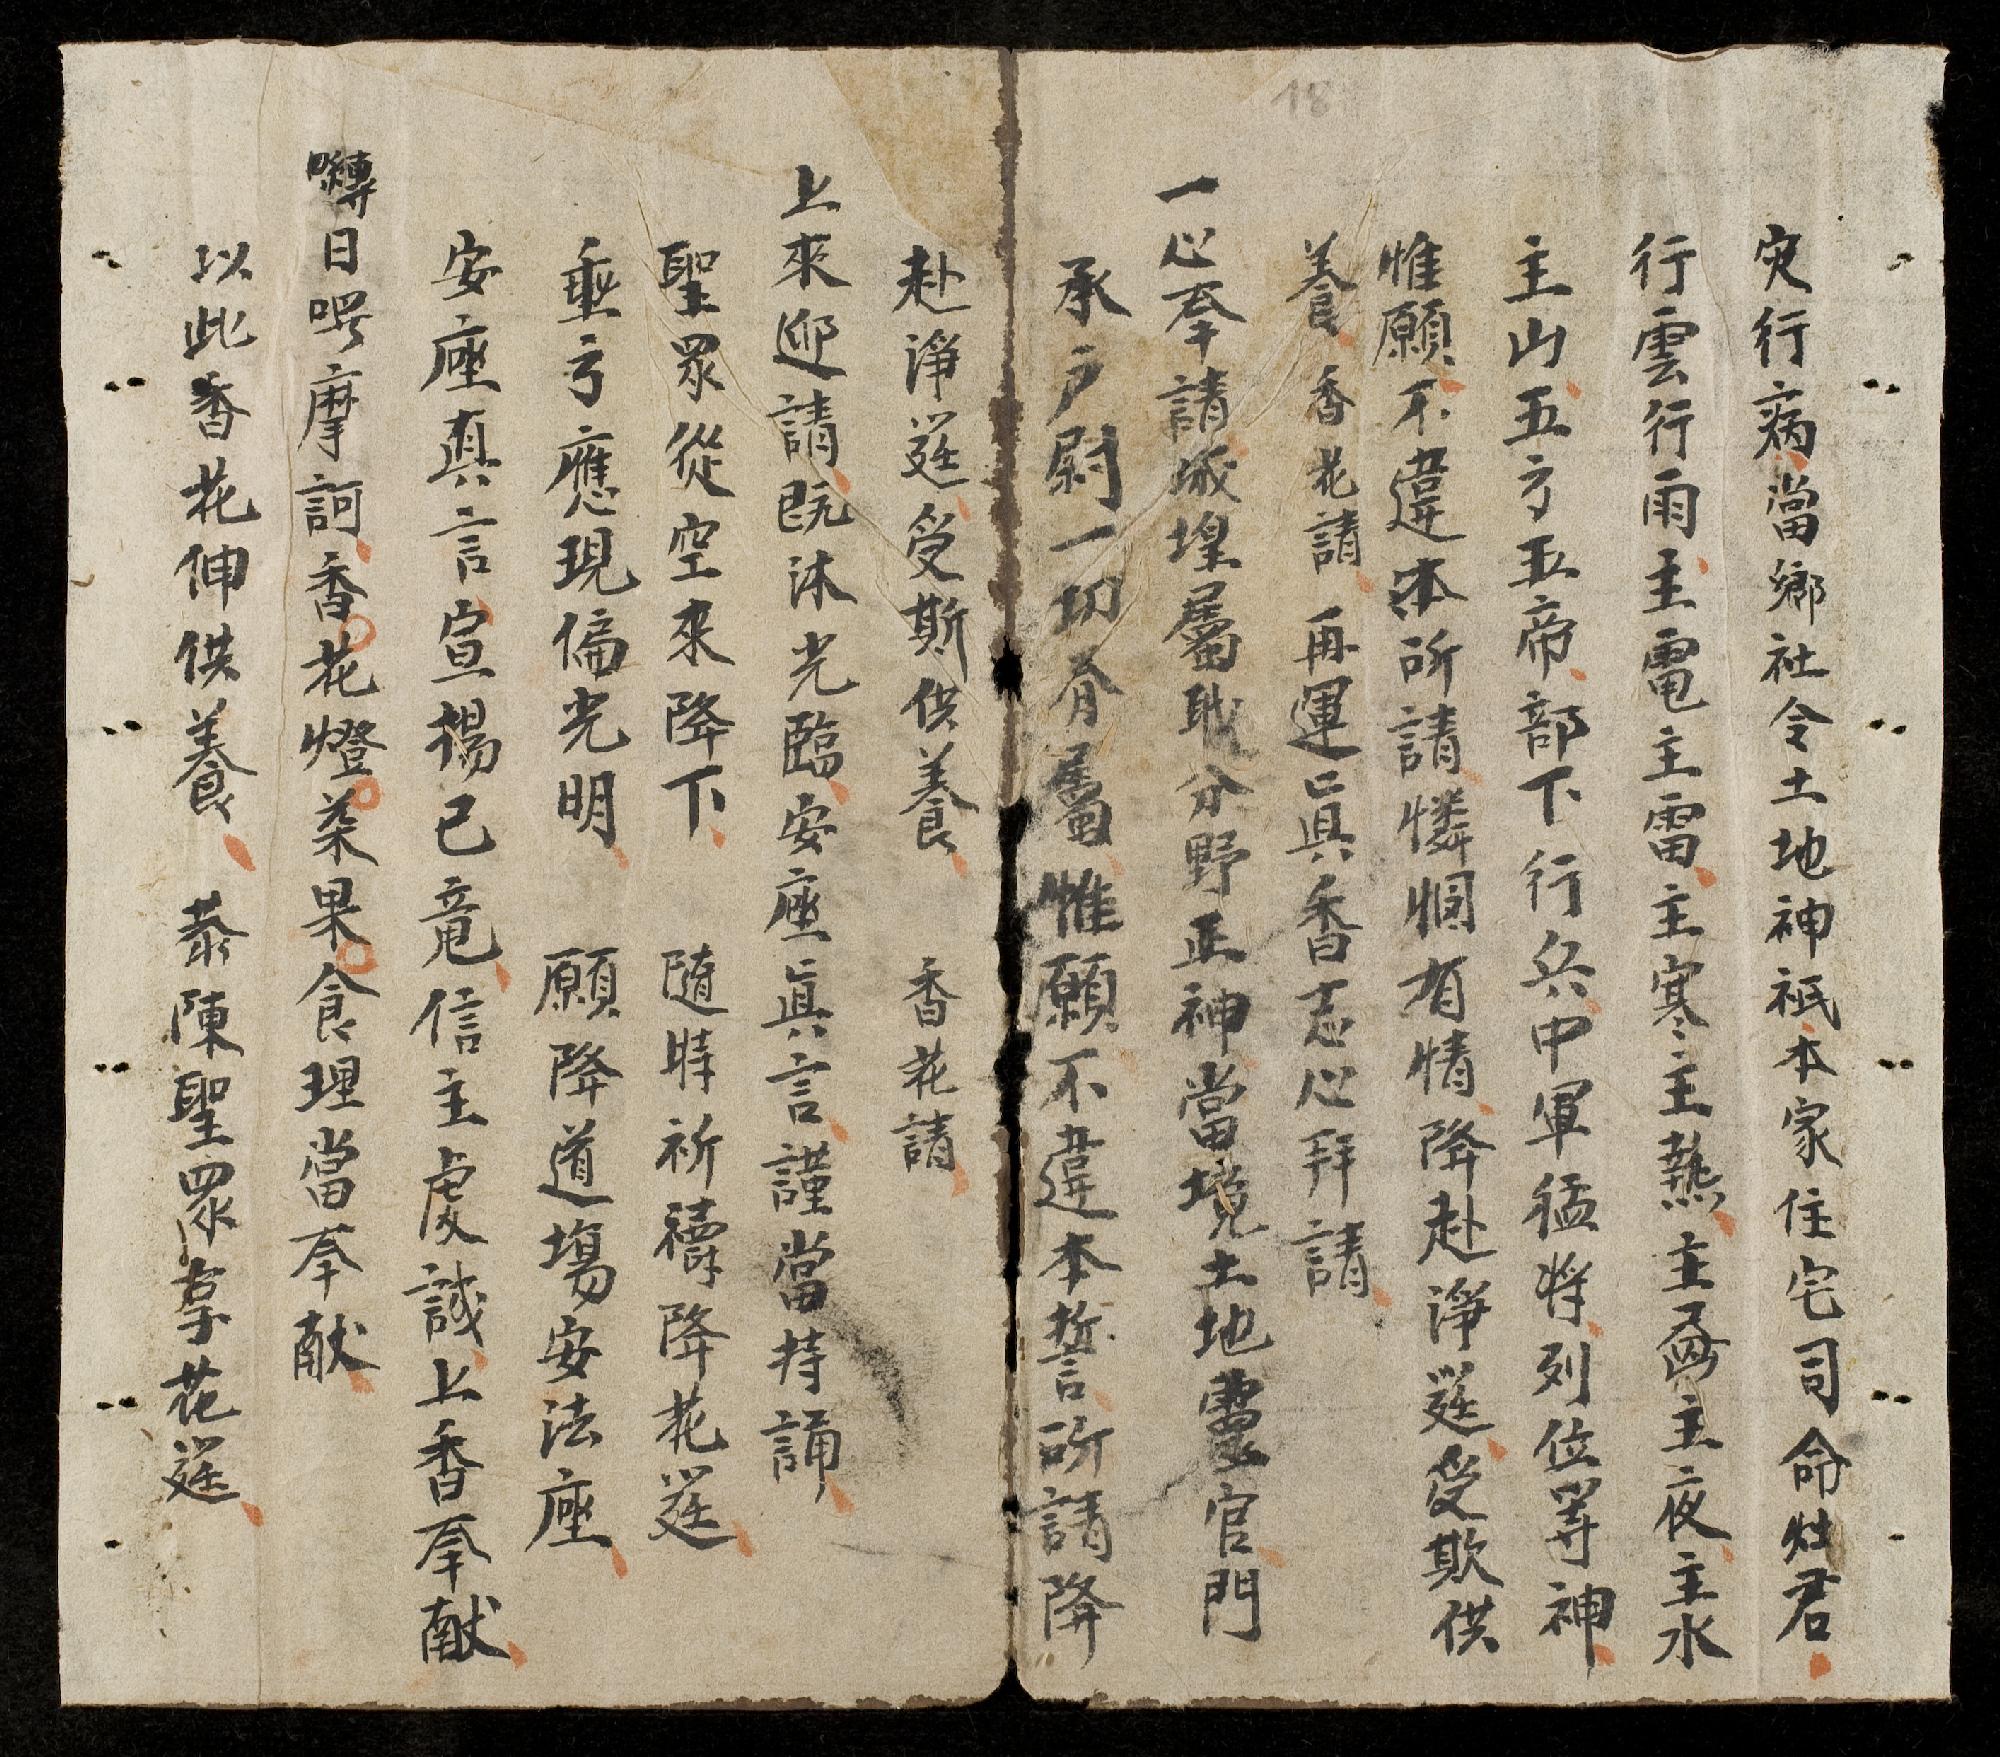 18
灾行病當鄉社令土地神祇本家住宅司命灶君
行雲行雨主電主雷主寒主熱主晝主夜主水
主山五方五帝部下行兵中軍猛将列位等神
惟願不違本所請憐憫有情降赴淨筵受欺供
養香花請再運真香志心拜請
一心奉請城堭屬耿分野正神當境土地靈官門
承户尉一切眷屬惟願不違本誓所請降
赴淨筵受斯供養 香花請
上來迎請既沐光臨安座眞言謹當持誦
聖眾從空來降下 隨時祈禱降花筵
垂方應現偏光明 願降道塲安法座
安座真言宣揚已竟信主虔誠上香奉献
囀日哶摩訶香花燈菜果食理當奉献
以此香花伸供養 泰陳聖眾享花筵